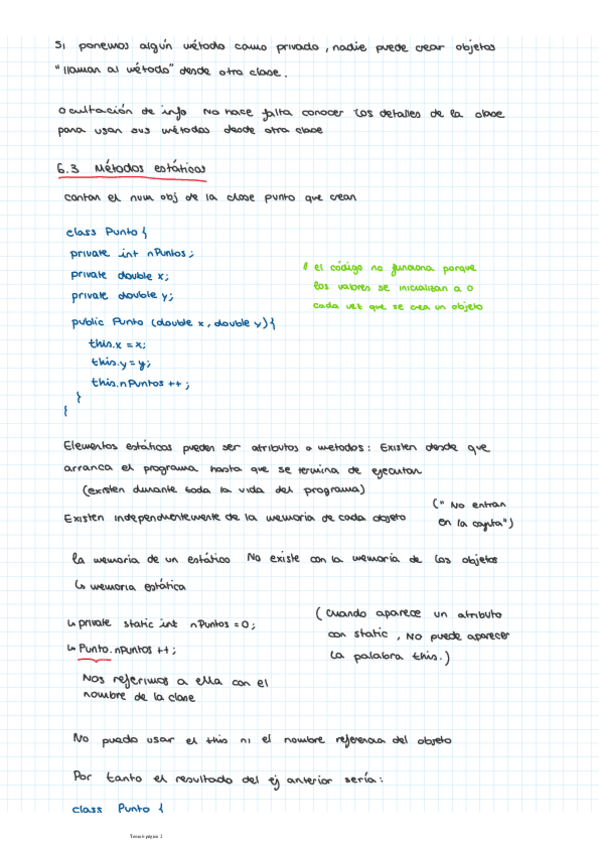 Si ponemos algún método como privado, nadie puede crear objetos
"llaman al método" desde otra clase.
Ocultación de info No hace falta conocer los detalles de la clase
para usar sus métodos desde otra clase
6.3 Métodos estáticos
contar el num obj de la clase punto que crean
class Punto {
private int nPuntos;
private double x;
private double y;
public Punto (double x, double y) {
this.x = x;
this.y = y;
this.nPuntos ++;
}
}
el código no funciona porque
los valores se inicializan a 0
cada vez que se crea un objeto
Elementos estáticos pueden ser atributos o metodos: Existen desde que
arranca el programa hasta que se termina de ejecutar
(existen durante toda la vida del programa)
Existen independientemente de la memoria de cada objeto
(" No entran
en la cajita")
la memoria de un estático No existe con la memoria de los objetos
↳ memoria estática
↳ private static int nPuntos = 0;
↳ Punto.nPuntos ++;
Nos referimos a ella con el
nombre de la clase
(cuando aparece un atributo
con static, No puede aparecer
la palabra this.)
No puedo usar el this ni el nombre referencia del objeto
Por tanto el resultado del ej anterior sería:
class Punto {
Tema 6 página 2